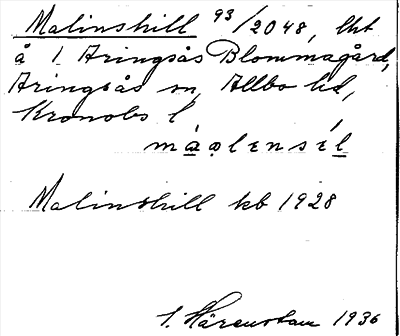 Malinshill 93/2048, lht
å 1 Aringsås Blommagård,
Aringsås sn, Allbo hd,
Kronobs l
Malinshill kb 1928
S. Härenstam 1936